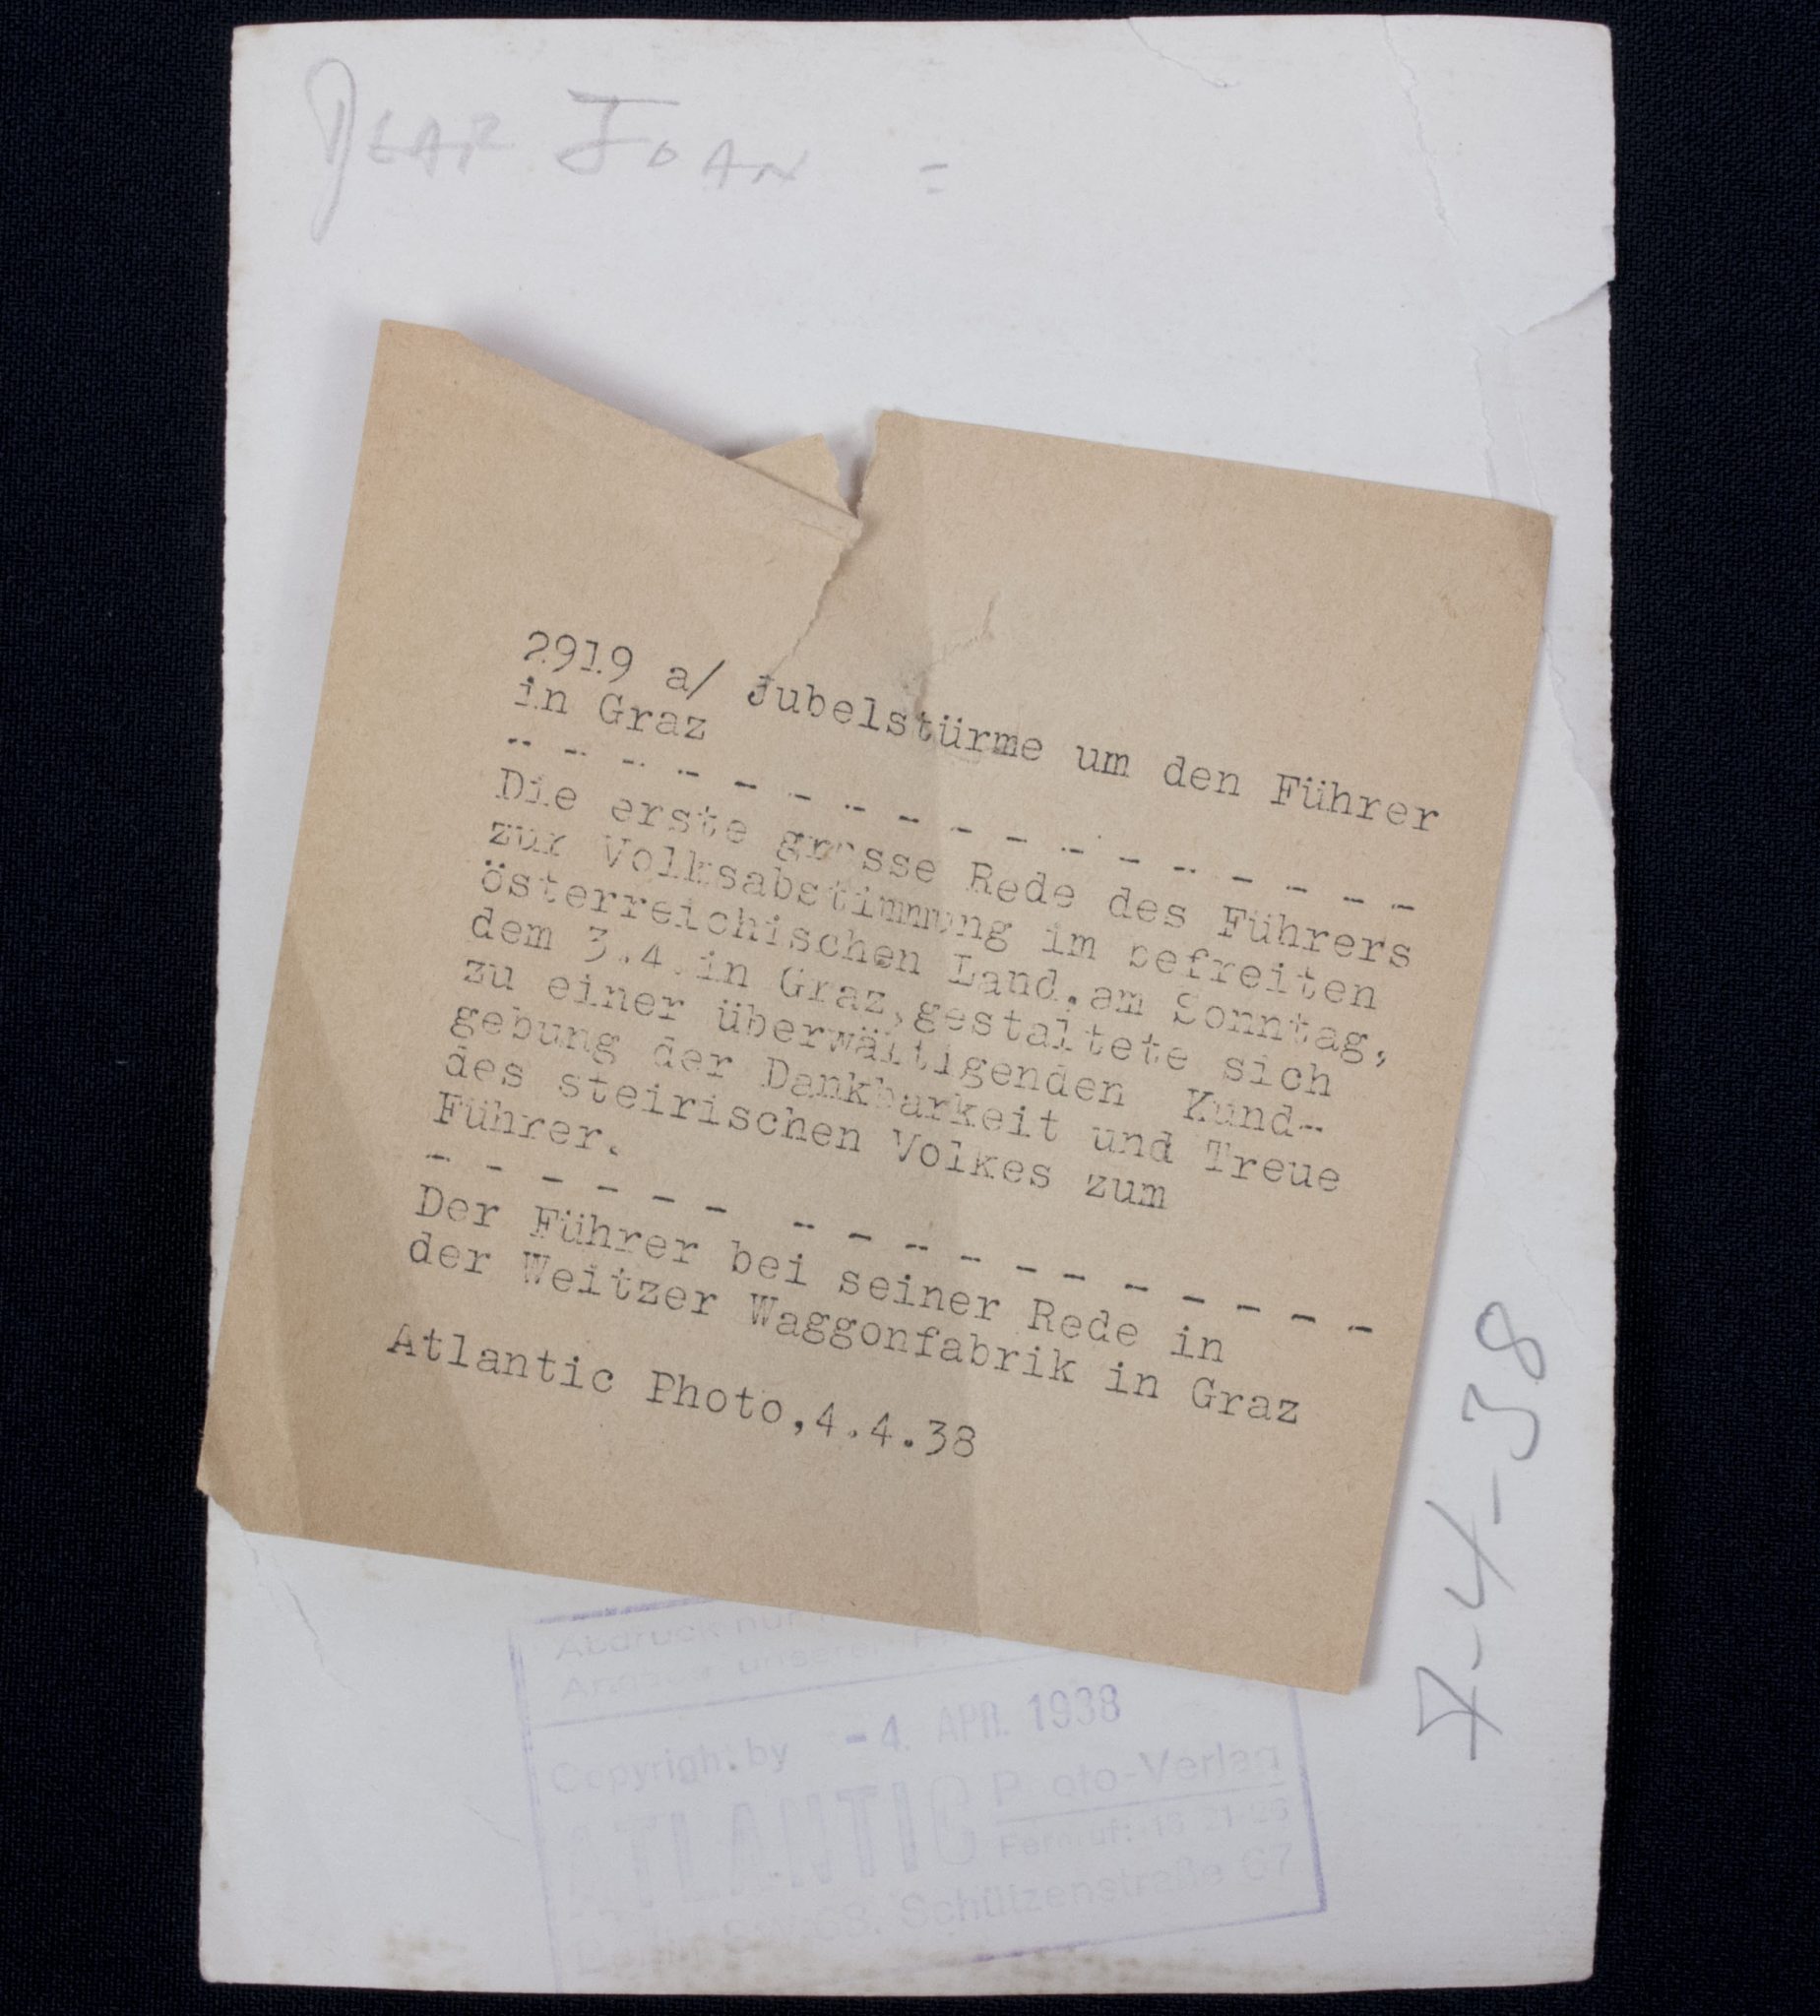 DEAR JOAN =
2919 a/ Jubelstürme um den Führer
in Graz
- - - - - - - - - - - - - - - - -
Die erste grosse Rede des Führers
zur Volksabstimmung im befreiten
österreichischen Land, am Sonntag,
dem 3.4. in Graz, gestaltete sich
zu einer überwältigenden Kund-
gebung der Dankbarkeit und Treue
des steirischen Volkes zum
Führer.
- - - - - - - - - - - - - - - - -
Der Führer bei seiner Rede in
der Weitzer Waggonfabrik in Graz
Atlantic Photo,4.4.38
7-4-38
Abdruck nur
Angabe unserer
Copyright by -4. APR. 1938
ATLANTIC Photo-Verlag
Fernruf:
Schützenstraße 67